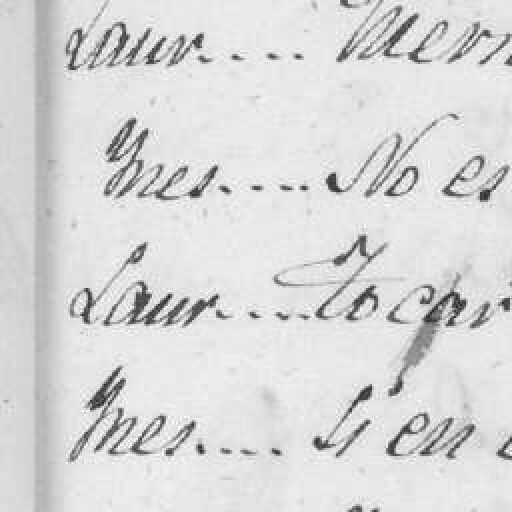 Laur....
Ynes..... No es
Laur..... Tocar
Ynes..... Si en